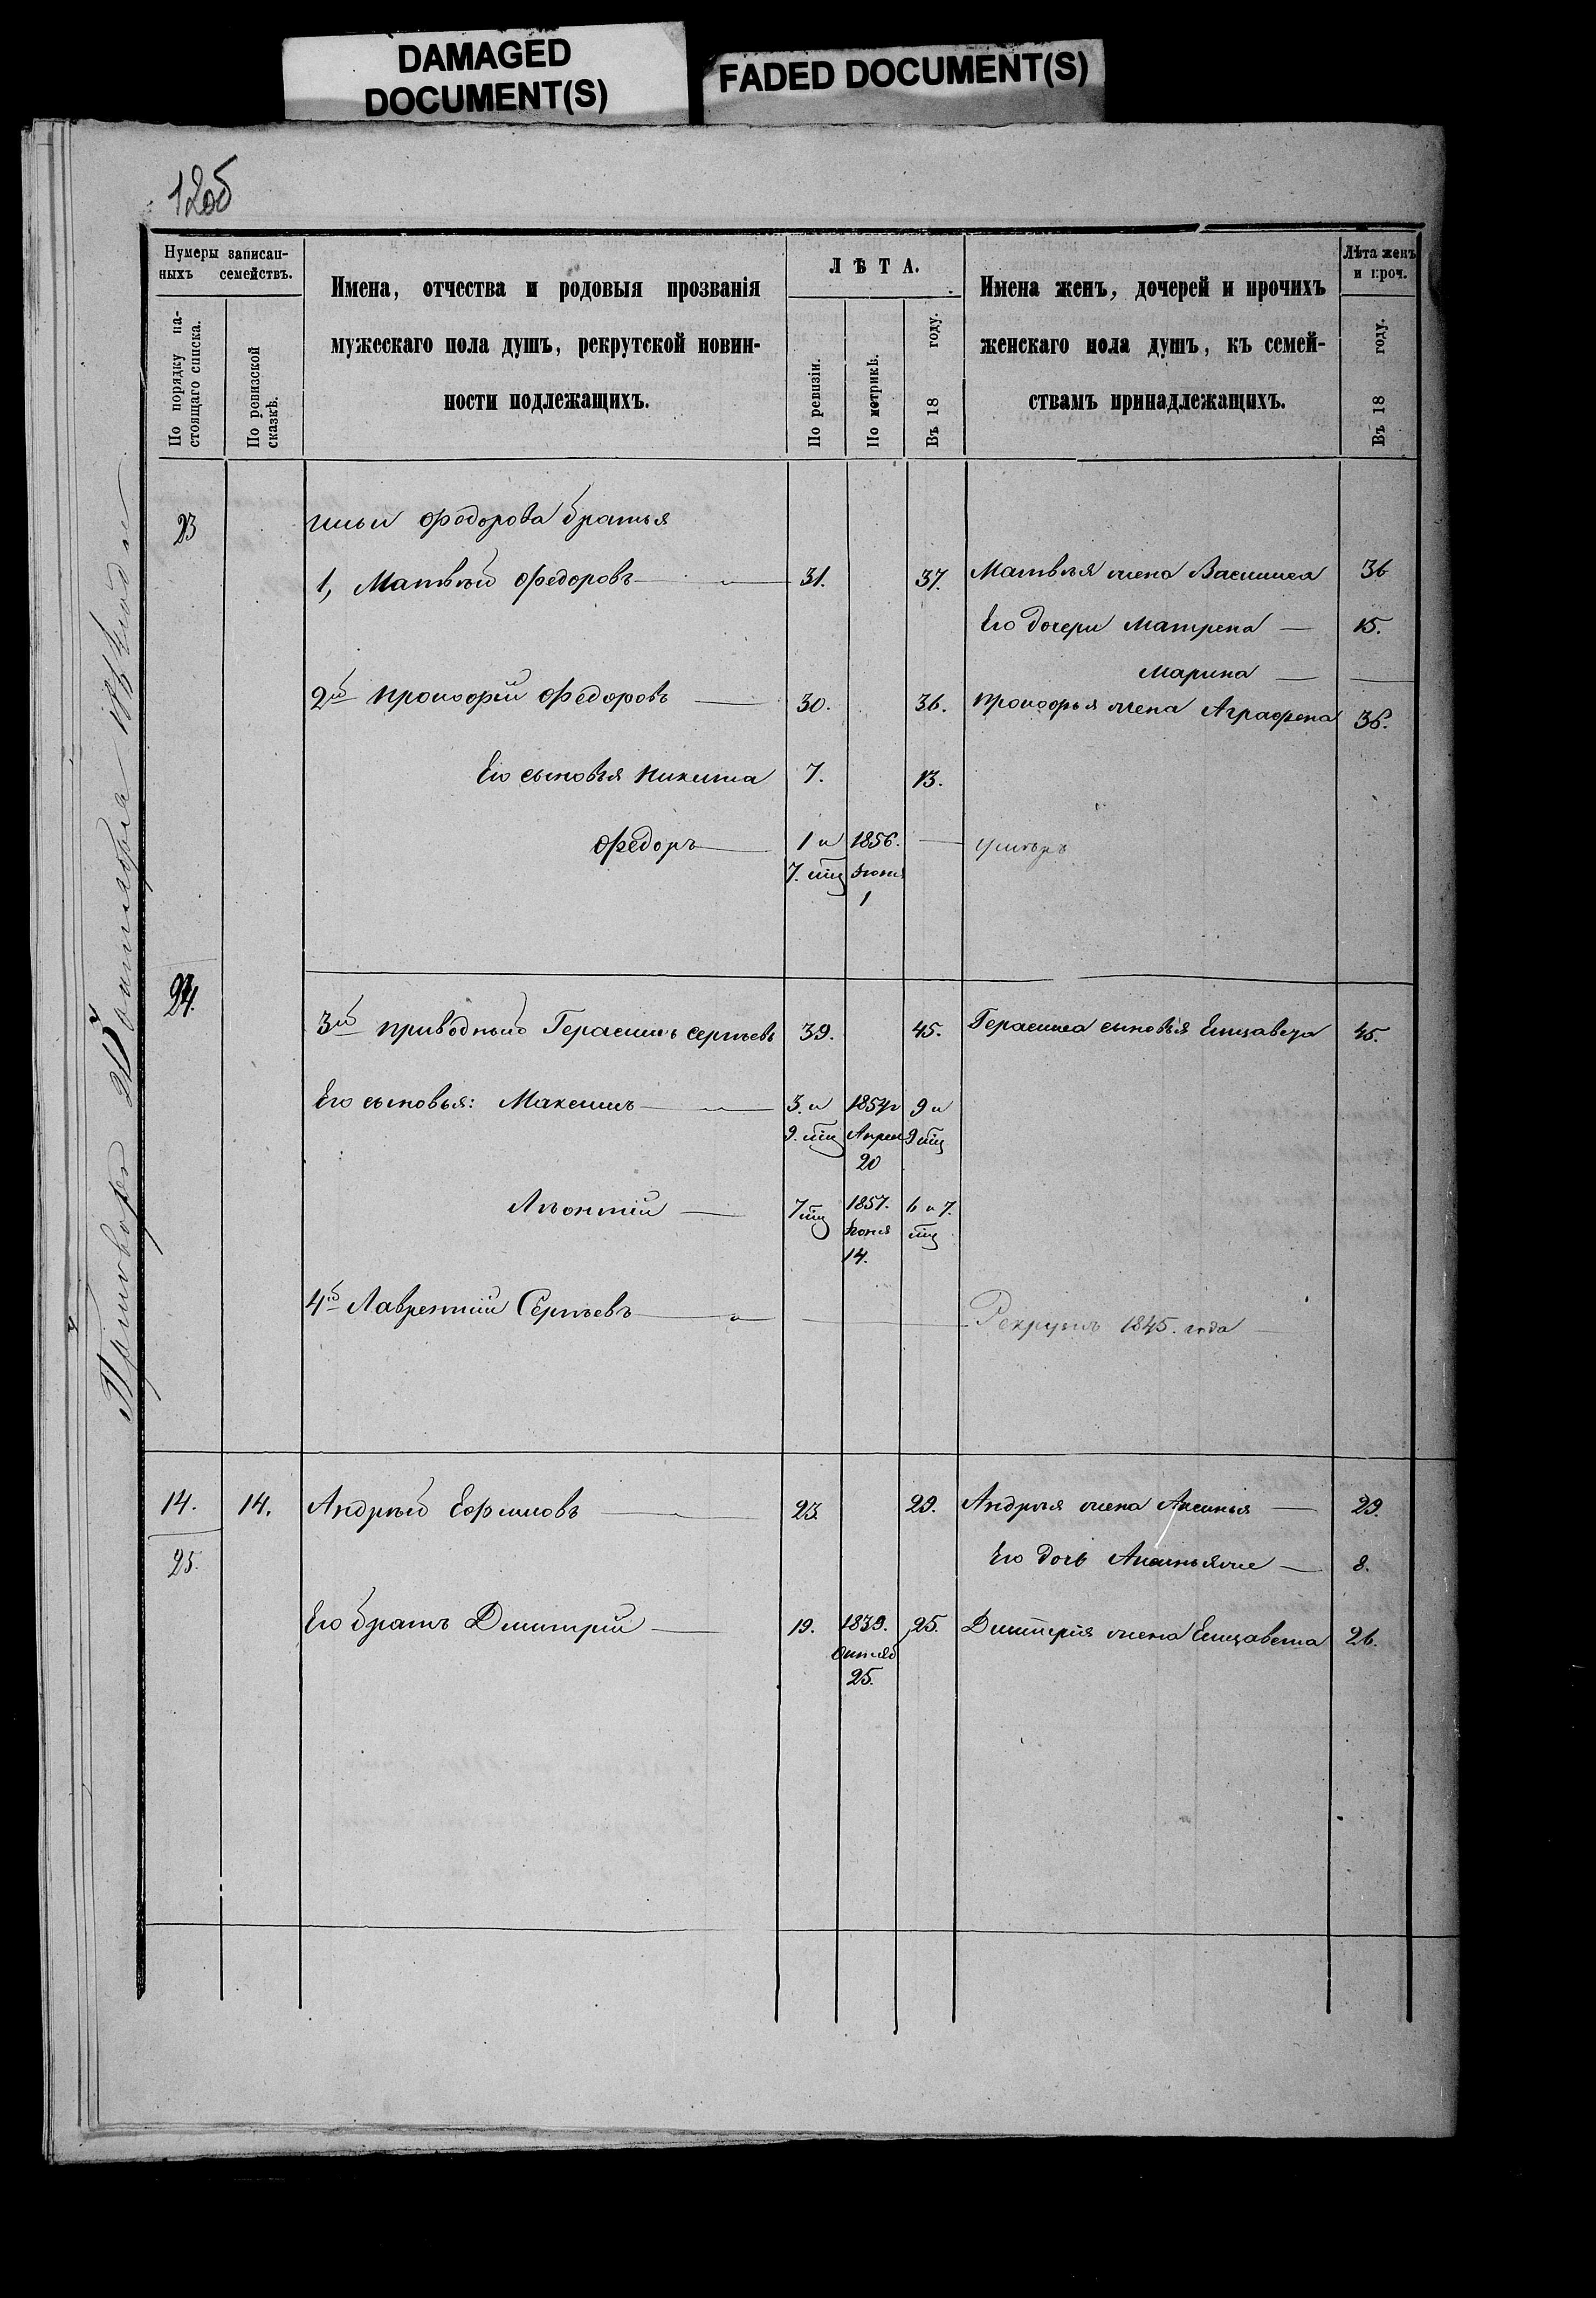 DAMAGED
DOCUMENT(S)
FADED DOCUMENT(S)
12об
Нумеры записан-
ныхъ семействъ.
По порядку на-
стоящаго списка.
По ревизской
сказкѣ.
Имена, отчества и родовыя прозванія
мужескаго пола душъ, рекрутской повин-
ности подлежащихъ.
ЛѢТА.
По ревизіи.
По метрикѣ.
Въ 18 году.
Имена женъ, дочерей и прочихъ
женскаго пола душъ, къ семей-
ствамъ принадлежащихъ.
Лѣта женъ
и проч.
Въ 18 году.
23 Федорова братья
1, Матвѣй Федоровъ 31. 37. Матвѣя жена Василиса 36
Его дочери Матрена 15.
Марина
2й Прокофій Федоровъ 30. 36. Прокофья жена Аграфена 36.
Его сыновья Никита 7. 13.
Федоръ 1 и 1856. умеръ
7. мц Іюня
1
24.
3й приводный Герасимъ Сергѣевъ 39. 45. Герасима сыновья Елизавета 45.
Его сыновья: Максимъ 3. и 1854 9 и
9. мц Апрел 9 мц
20
Лѣонтій 7 мц 1857. 6 и 7.
Іюня мц
14.
4й Лаврентій Сергѣевъ Рекрутъ 1845. года
14. 14. Андрѣй Ефимовъ 23. 29. Андрѣя жена Аксинья 29.
25. Его дочь 8.
Его братъ Дмитрій 19. 1839. 25. Дмитрія жена Елизавета 26.
Октяб
25.
Приговоръ